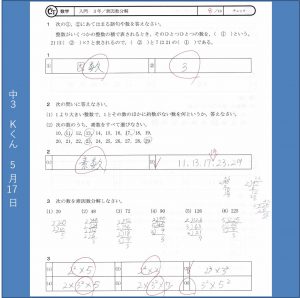 数学 入門 3年/素因数分解
8/10
1 次の①、②にあてはまる語句や数を答えなさい。
整数がいくつかの整数の積で表されるとき、そのひとつひとつの数を、( ① )という。
21は( ② )×7と表されるので、( ② )と7は21の( ① )である。
1
① 因数 ② 3
2 次の問いに答えなさい。
(1) 1より大きい整数で、1とその数のほかに約数がない数を何というか、答えなさい。
(2) 次の数のうち、素数をすべて選びなさい。
10, 11, 12, 13, 14, 15, 16, 17, 18, 19,
20, 21, 22, 23, 24, 25, 26, 27, 28, 29
2
(1) 素数 (2) 11, 13, 17, 23, 29
3 次の数を素因数分解しなさい。
(1) 20 (2) 48 (3) 72 (4) 90 (5) 126 (6) 225
3
(1) 2²×5 (2) 2⁴×3 (3) 2³×3²
(4) 2×3²×5 (5) 2×3²×7 (6) 3²×5²
中3 Kくん 5月17日